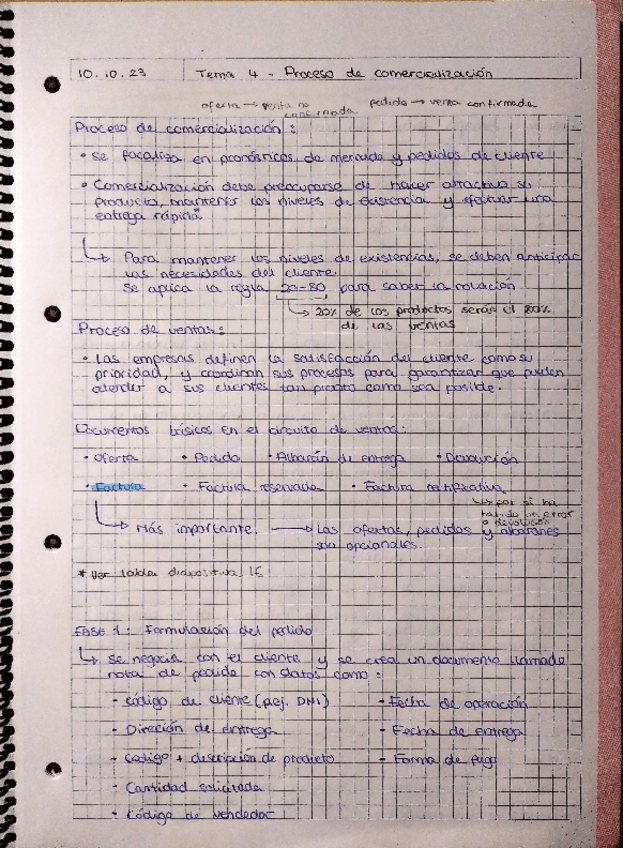 10.10.23 Tema 4 - Proceso de comercialización
oferta → venta no confirmada pedido → venta confirmada
Proceso de comercialización:
• Se focaliza en pronósticos de mercado y pedidos de cliente
• Comercialización debe preocuparse de hacer atractivo su
producto, mantener los niveles de existencia y efectuar una
entrega rápida.
↳ Para mantener los niveles de existencias, se deben anticipar
las necesidades del cliente.
Se aplica la regla 20-80 para saber la rotación
↳ 20% de los productos serán el 80%
de las ventas
Proceso de ventas:
• Las empresas definen la satisfacción del cliente como su
prioridad, y coordinan sus procesos para garantizar que pueden
atender a sus clientes tan pronto como sea posible.
Documentos básicos en el circuito de ventas:
• Oferta • Pedido • Albarán de entrega • Devolución
• Factura • Factura reservada • Factura rectificativa
↳ por si ha
habido un error
o devolución
↳ Más importante. → Las ofertas, pedidos y albaranes
son opcionales.
* Ver tabla diapositiva 15
Fase 1: Formulación del pedido
↳ Se negocia con el cliente y se crea un documento llamado
nota de pedido con datos como:
- Código de cliente (pej. DNI) - Fecha de operación
- Dirección de entrega - Fecha de entrega
- Código + descripción de producto - Forma de pago
- Cantidad solicitada
- Código de vendedor